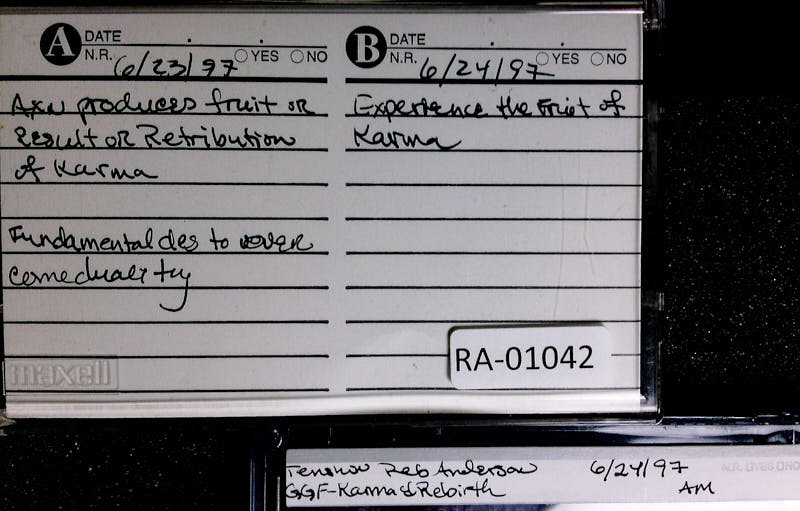 A DATE
N.R. 6/23/97 YES NO
Axn produces fruit or
Result or Retribution
of Karma
Fundamental des to over
comeduality
maxell
B DATE
N.R. 6/24/97 YES NO
Experience the Fruit of
Karma
RA-01042
Tenshin Reb Anderson 6/24/97
GGF-Karma & Rebirth AM
N.R. YES NO